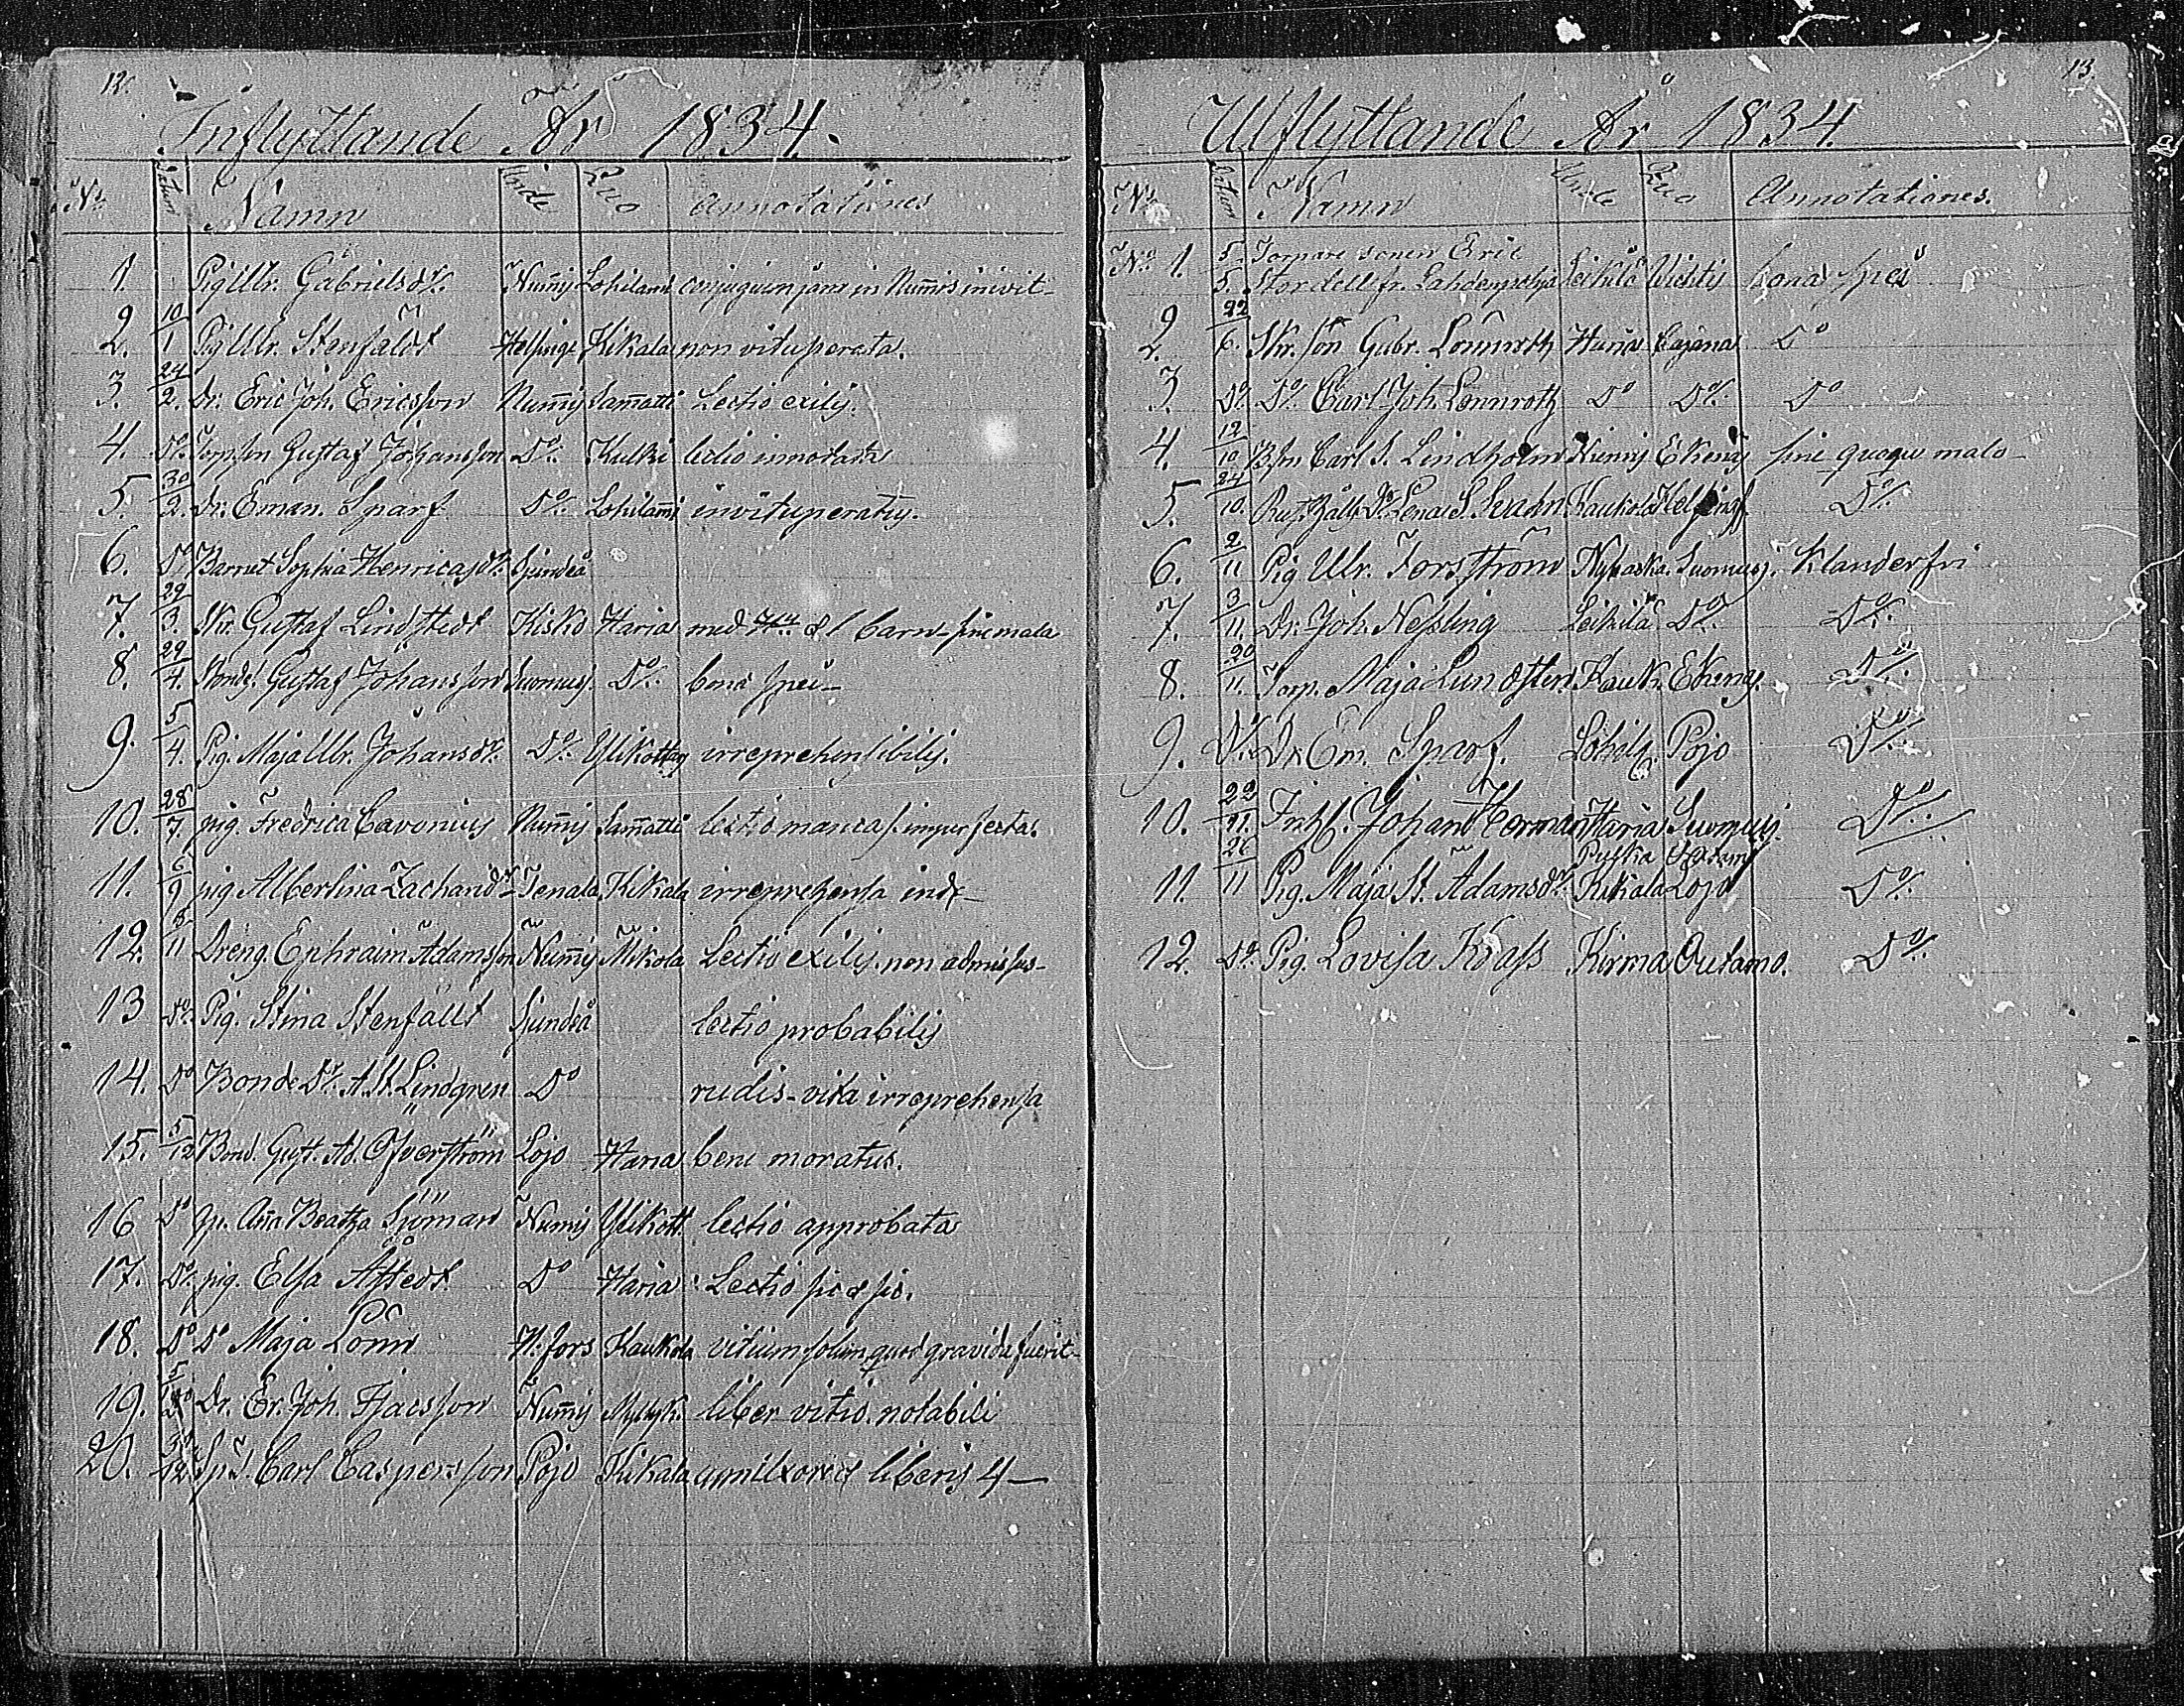 12.
Inflyttande År 1834.
No. Datum Namn Unde Quo Annotationes
1. Pig Ulr. Gabrielsdr. Num̄is Lohilam̄i conjugium jam in Num̄is inivit
2. 10/1 Pig Ulr. Stenfaldt Helsinge Kikala non vituperata.
3. 24/2. Dr. Eric Joh. Ericsson Num̄is Sam̄atti Lectio exilis.
4. Do. Torp.son Gustaf Johansson Do. Kulki lectio innotata
5. 30/2. Dr. Eman. Sparf Do. Lohilam̄i invituperatus.
6. Do Barnet Sophia Henricasdr. Sjundeå
7. 29/3. Skr. Gustaf Lindstedt Kisko Haria med Hu & 1 barn sine mala
8. 29/4. Bonds. Gustaf Johansson Suomusj. Do. bona spei
9. 5/4. Pig. Maja Ulr. Johansdr. Do. Ylikottby irreprehensibilis.
10. 28/7. pig. Fredrica Cavonius Num̄is Sam̄atti lectio manca s. imperfecta.
11. 6/9 pig Albertina Zachariædr Tenala Kikala irreprehensa inde
12. 8/11 Dreng. Ephraim Adamsson Num̄is Mikola Lectio exilis. non admissus
13 Do. Pig. Stina Stenfällt Sjundeå lectio probabilis
14. Do Bonde Dr. A. St. Lindgren Do rudis - vita irreprehensa
15. 5/12 Bond. Gust. Ad. Öfverström Lojo Haria bene moratus.
16 Do Gu. An̄a Beatha Siiman Num̄is Ylikott. lectio approbata
17. Do. pig. Elsa Åstedt Do Haria Lectio sic & sic.
18. Do Do Maja Lönn H:fors Kaukola vitium solum quod gravida fuerit
19. Dr. Er. Joh. Isacsson Num̄is Myllyk. liber vitio notabili
20. 30/12 Carl Caspersson Pojo Kikala cum uxore & liberis 4
13.
Utflyttande År 1834.
No. Datum Namn Unde Quo Annotationes.
No. 1. 5./5. Tornare sonen Eric
Stordell fr. Lahdenpohja Leikilä Wichtis bona spei
2. 22/6. Skr. son Gabr. Lönnroth Haria Cajana Do
3. Do. Do. Carl Joh. Lönnroth Do Do. Do
4. 12/10 B.sn Carl J. Lindholm Num̄is Ekenäs sine quoque malo
5. 24/10. Rust.håll. Dr. Lena S. Svahn Kaukola Helsingf. Do.
6. 2/11 Pig Ulr. Forsström Nybacka. Suomusj. Klanderfri
7. 3/11. Dr. Joh. Nessling Leikilä Do. Do.
8. 20/11. Torp. Maja Lundsten Kauk. Ekenäs. Do.
9. Do. Dr. Em. Sparf. Lohila. Pojo Do.
10. 22/11. Inh. Johan Herman Haria Suomusj. Do.
11. 26/11 Pig. Maja St. Adamsdr. Kikala Lojo Do.
12. Do. Pig. Lovisa Krass Kirma Outamo. Do.